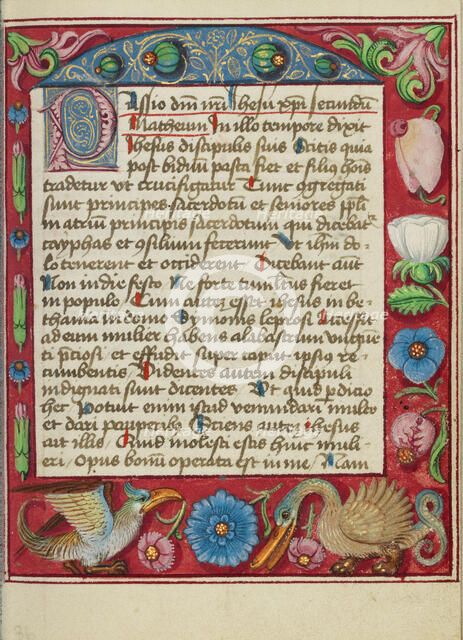 Passio dm̄ nr̄i Jhesu xp̄i secundū
Matheum In illo tempore dixit
Jhesus discipulis suis Scitis quia
post biduum pasca fiet et filius hōis
tradetur vt crucifigatur Tunc aggregati
sunt principes sacerdotū et seniores ppl̄i
in atriū principis sacerdotum qui dicebat̄
cayphas et ꝯsilium fecerunt Vt ihm̄ do⸗
lo tenerent et occiderent Dicebant aūt
Non in die festo Ne forte tumultus fieret
in populo Cum autē esset ihesus in be⸗
thania in domo Symonis leprosi Accessit
ad eum mulier habens alabastrum vngnēti
p̄ciosi et effudit super caput ipsius re⸗
cumbentis Videntes autem discipuli
indignati sunt dicentes Vt quid ꝑdicio
hec Potuit enim istud venundari multo
et dari pauperibꝰ Sciens autē ihesus
ait illis Quid molesti estis huic muli⸗
eri Opus bonū operata est in me Nam
Heritage